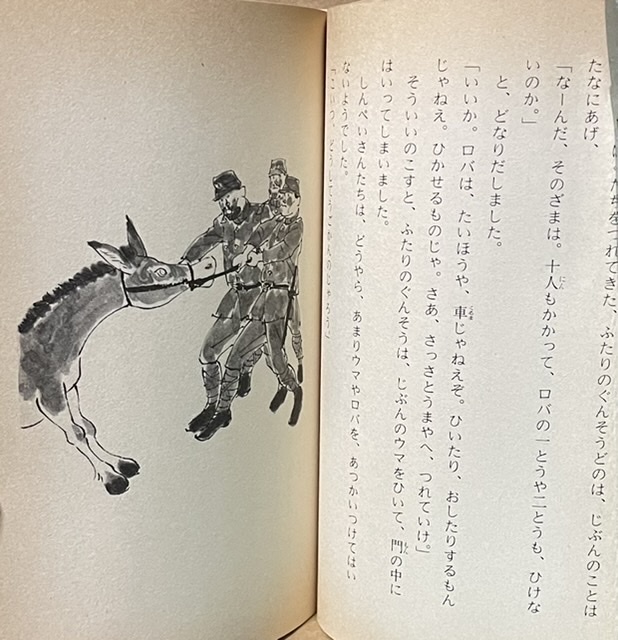 たちをつれてきた、ふたりのぐんそうどのは、じぶんのことは
たなにあげ、
「なーんだ、そのざまは。十人もかかって、ロバの一とうや二とうも、ひけな
いのか。」
と、どなりだしました。
「いいか。ロバは、たいほうや、車じゃねえぞ。ひいたり、おしたりするもん
じゃねえ。ひかせるものじゃ。さあ、さっさとうまやへ、つれていけ。」
そういいのこすと、ふたりのぐんそうは、じぶんのウマをひいて、門の中に
はいってしまいました。
しんぺいさんたちは、どうやら、あまりウマやロバを、あつかいつけてはい
ないようでした。
「こいつ、どうしてうごかんのじゃろう」